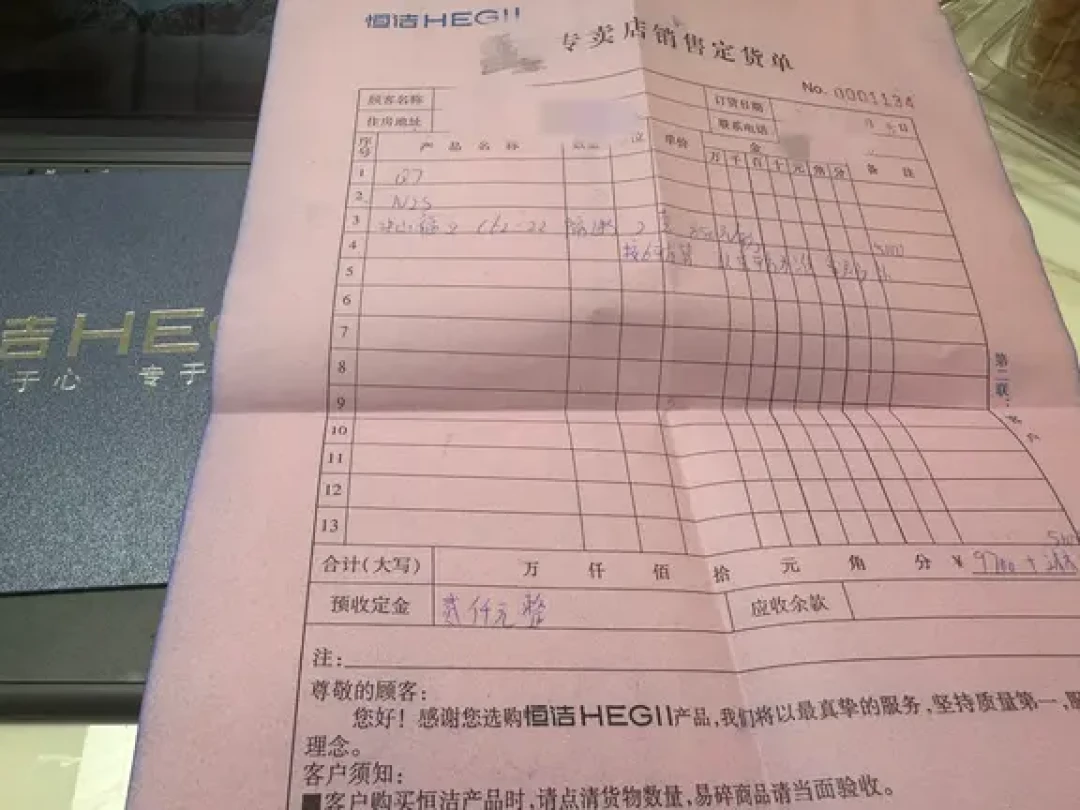 恒洁HEGII
专卖店销售定货单
No. 0001134
顾客名称 订货日期 月 日
住房地址 联系电话
序号 产品名称 数量 单价 金 万 千 百 十 元 角 分 备注
1 Q7
2 N25
3 2
4
5
6
7
8
9
10
11
12
13
第二联：客户
合计(大写) 万 仟 佰 拾 元 角 分 ¥
预收定金 贰仟元整 应收余款
注：
尊敬的顾客：
您好！感谢您选购恒洁HEGII产品，我们将以最真挚的服务，坚持质量第一，服
理念。
客户须知：
■客户购买恒洁产品时，请点清货物数量，易碎商品请当面验收。
吉HEG
于心 专于